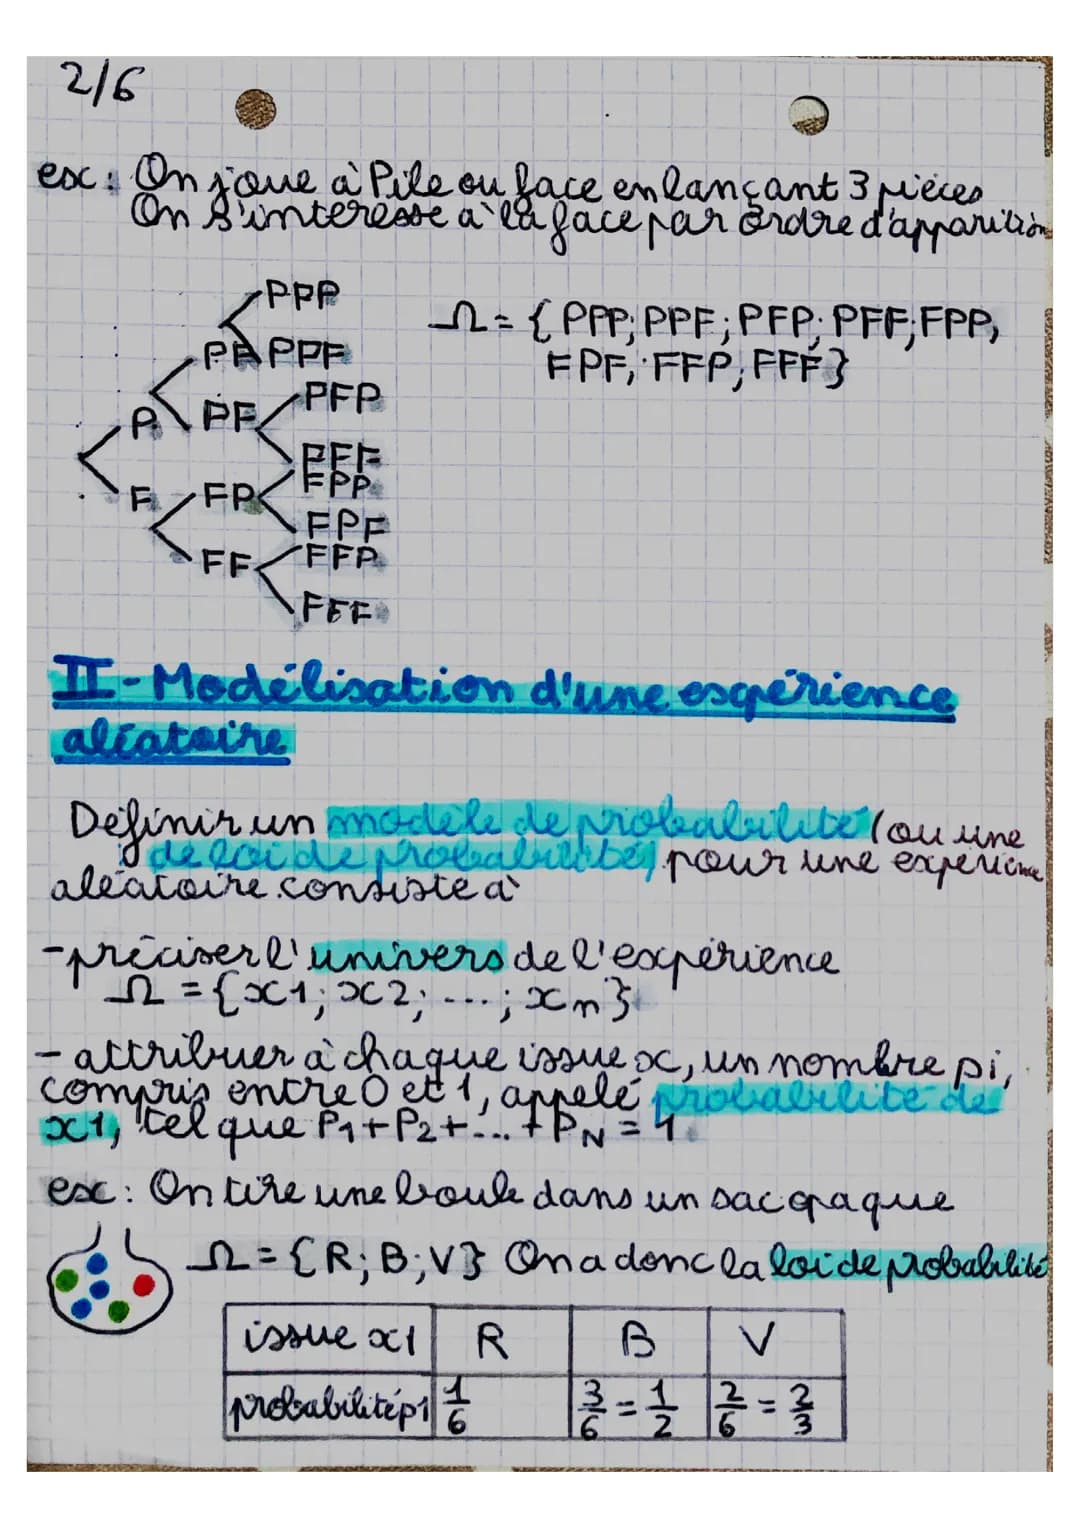 2/6
ex: On joue à Pile ou face en lançant 3 pièces
On s'intéresse à la face par ordre d'apparition
PPP
Ω = { PPP; PPF; PFP; PFF; FPP,
PP PPF
FPF; FFP; FFF }
PFP
P PF
PFF
FPP
F FP
FPF
FFP
FF
FFF
II - Modélisation d'une expérience
aléatoire
Définir un modèle de probabilité (ou une
de loi de probabilité) pour une expérience
aléatoire consiste à
- préciser l'univers de l'expérience
Ω = {x1; x2; ...; xn}
- attribuer à chaque issue x, un nombre pi,
compris entre 0 et 1, appelé probabilité de
x1, tel que P1+P2+...+PN = 1.
ex: On tire une boule dans un sac opaque
Ω = {R; B; V} On a donc la loi de probabilité
issue x1 R B V
probabilité p1 1/6 3/6 = 1/2 2/6 = 2/3